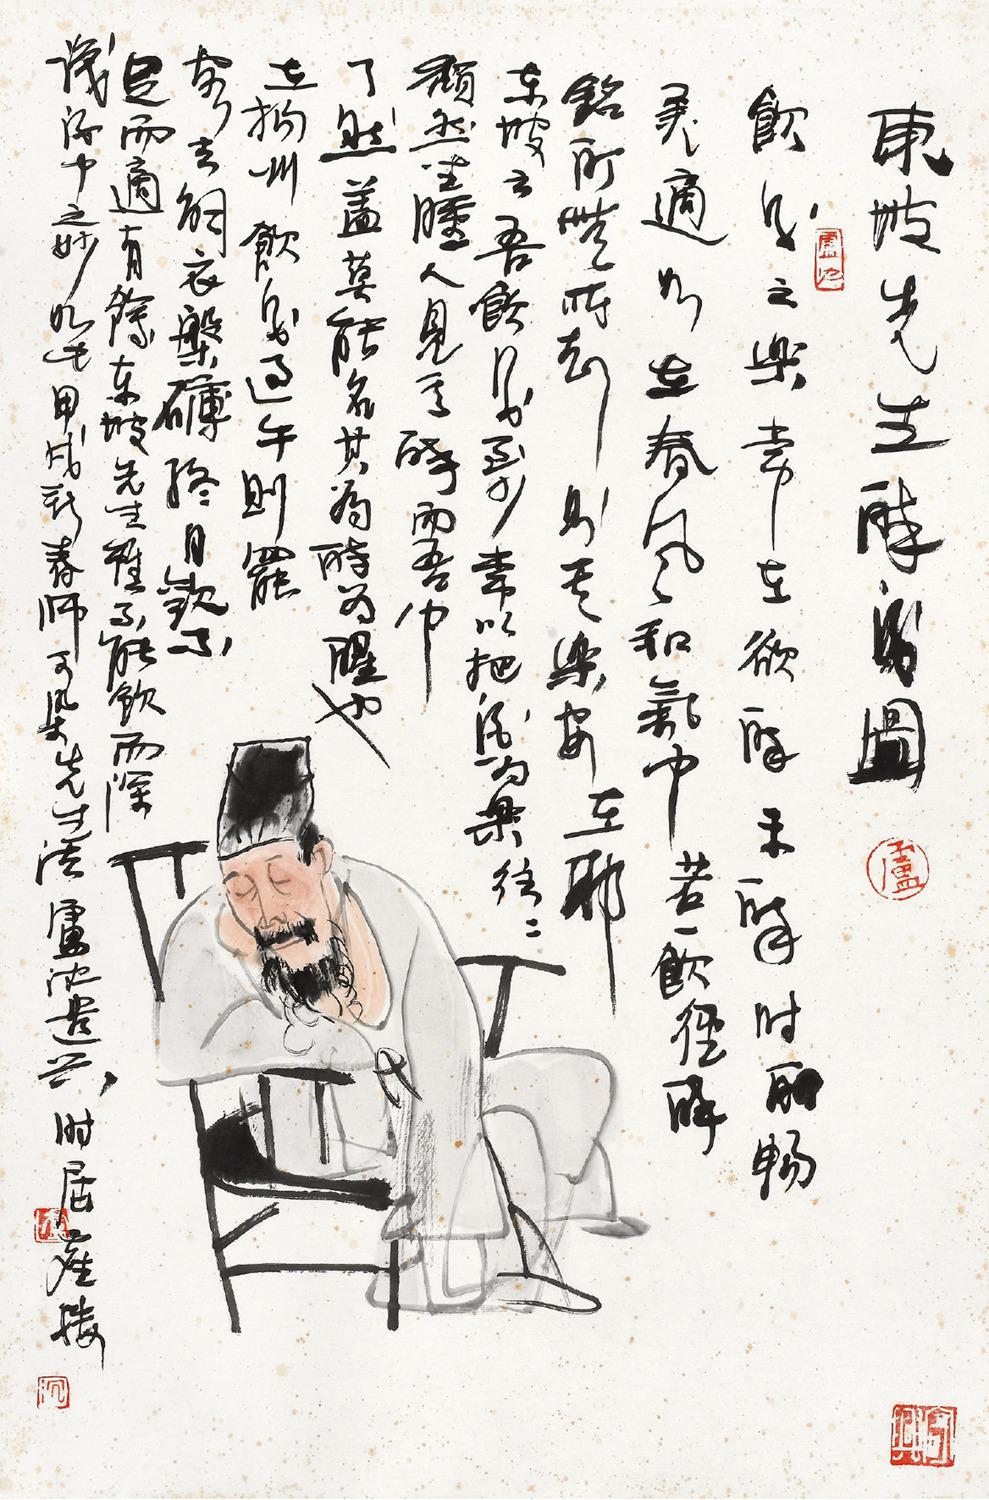 東坡先生醉酒圖
飲酒之樂常在欲醉未醉時酣暢
美適如在春風和氣中若一飲徑醉
銘酊無所知則其樂安在耶
東坡云吾飲酒至少常以把酒為樂往二
頹然坐睡人見其醉而吾中
了然蓋莫能名其為醉為醒也
在揚州飲酒過午則罷
客去解衣槃礴終日歡不
足而適有餘東坡先生雖不能飲而深
識酒中之妙如此甲戌新春師可染先生法盧沉遣興時居塵樓
盧沉
沉